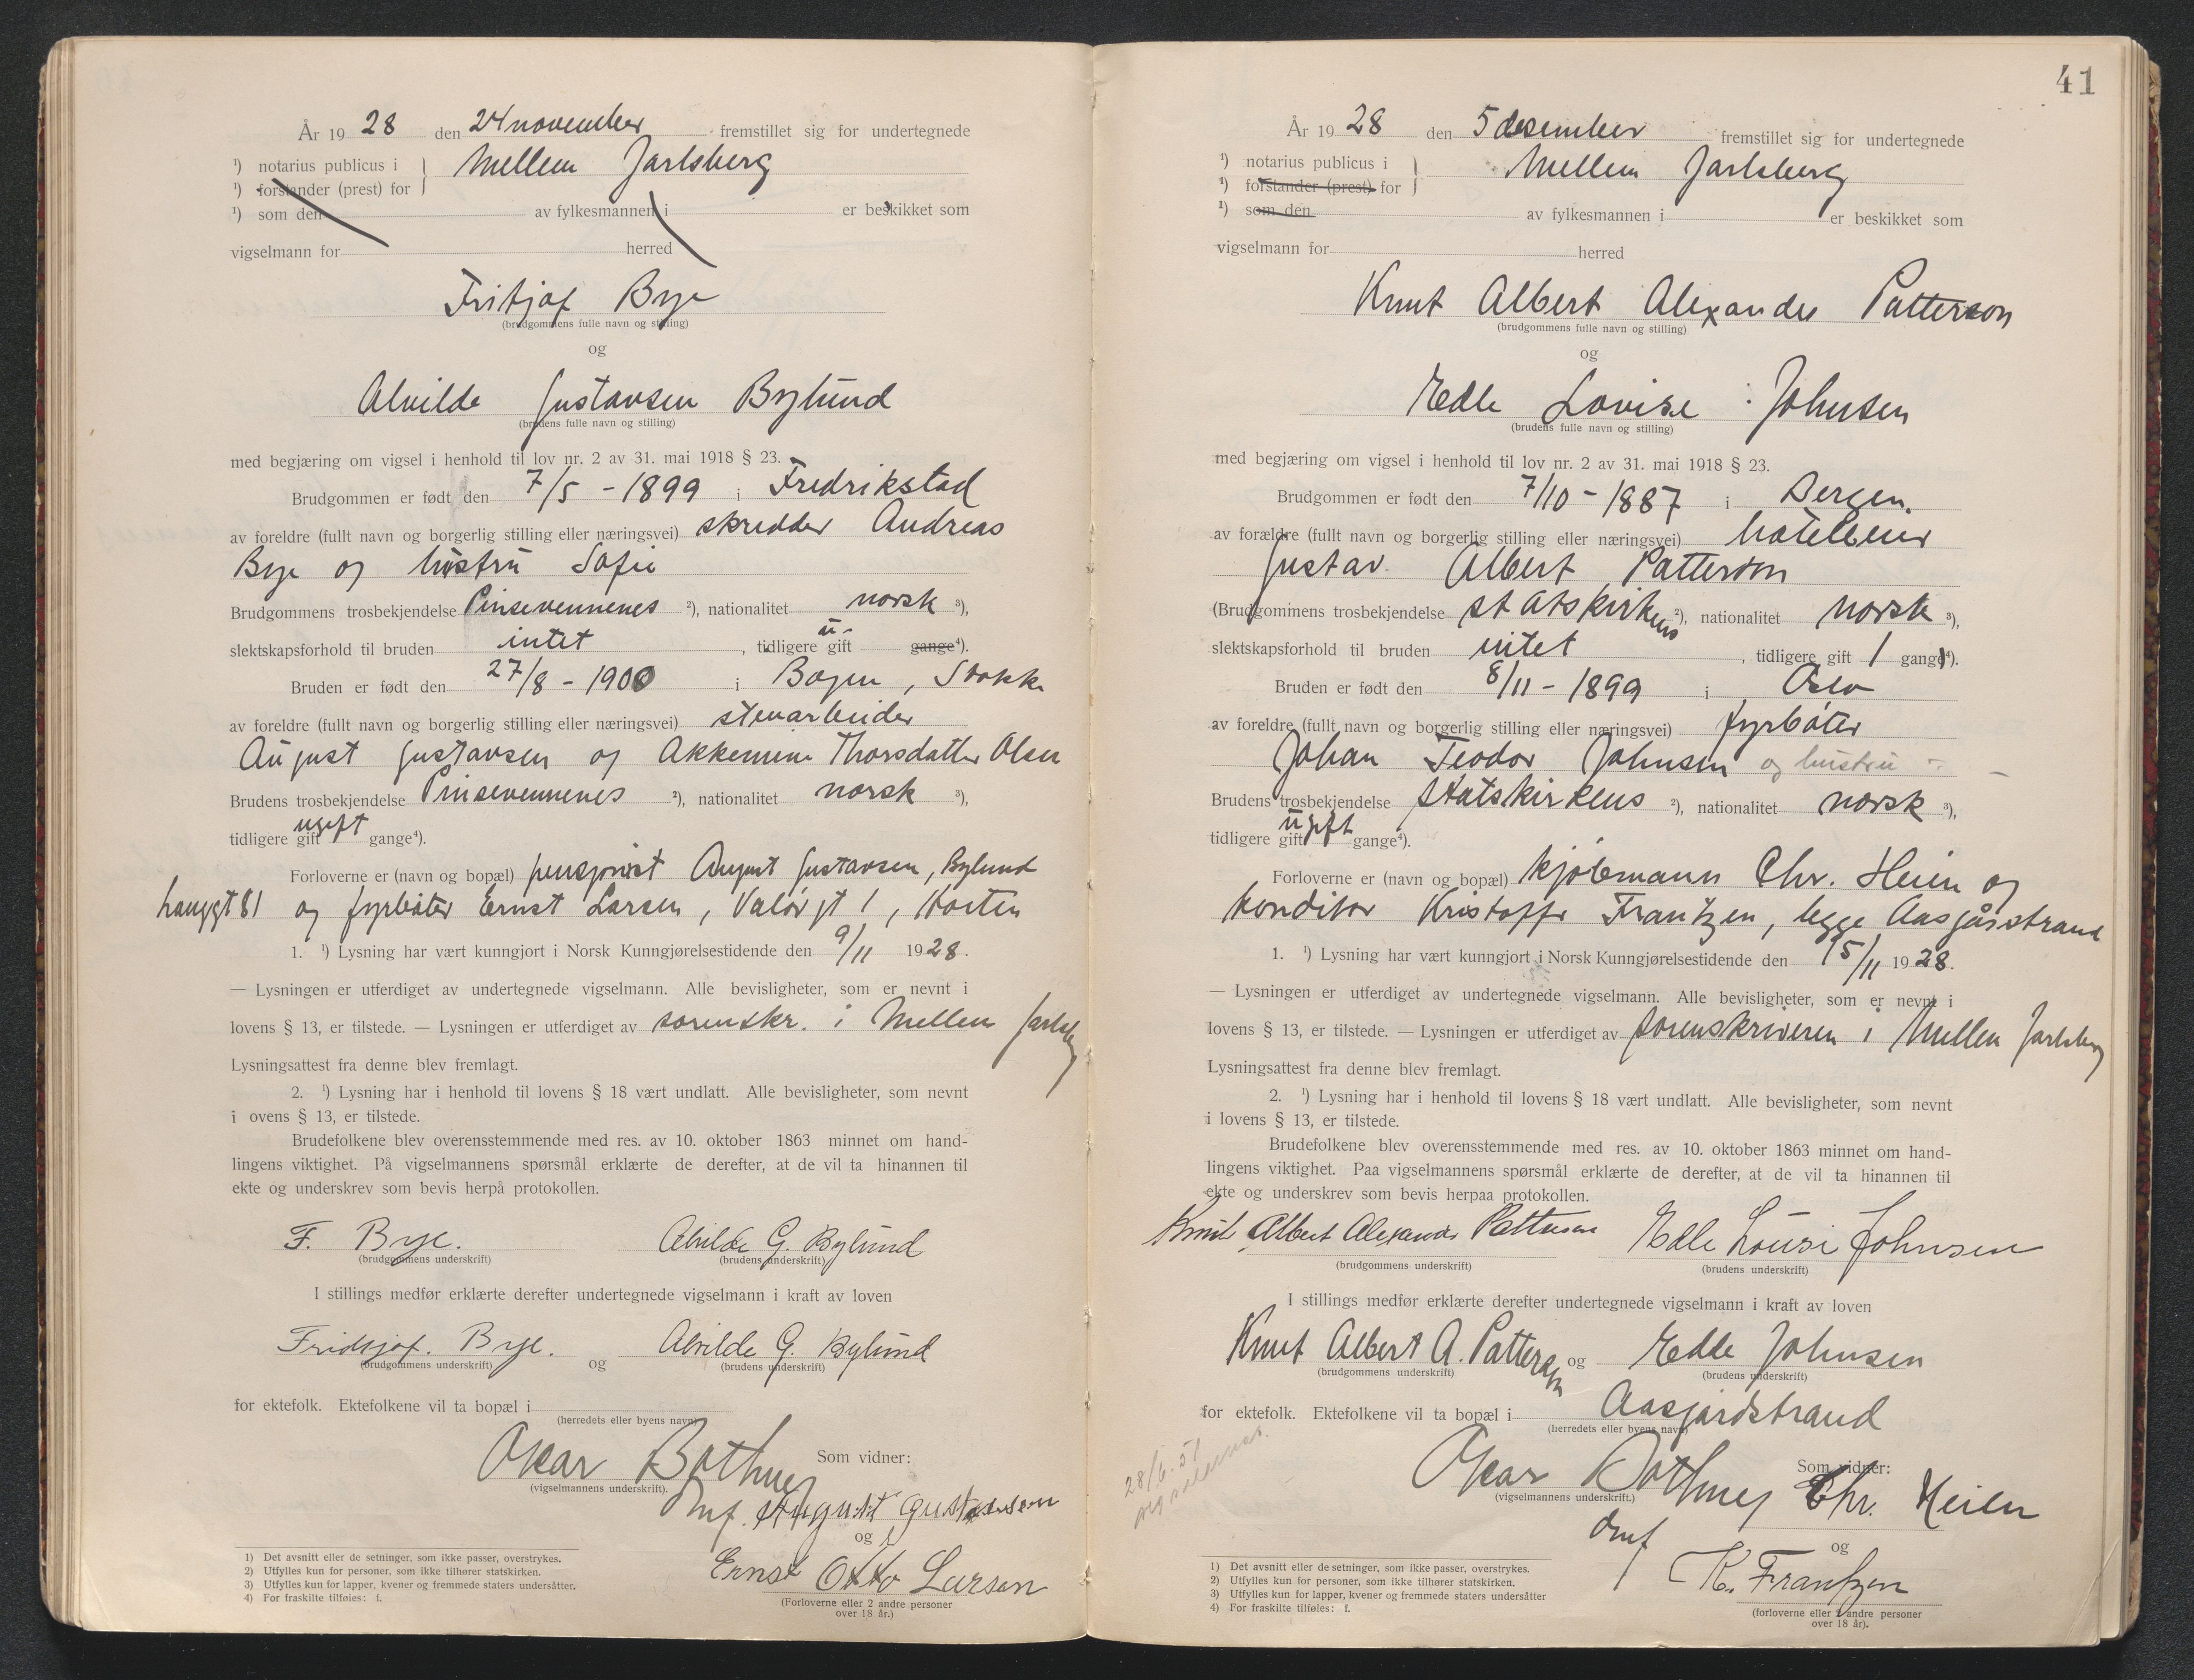 År 1928 den 24 november fremstillet sig for undertegnede
¹) notarius publicus i } Mellem Jarlsberg
¹) forstander (prest) for
¹) som den av fylkesmannen i er beskikket som
vigselmann for herred
Fritjof Bye
(brudgommens fulle navn og stilling)
og
Alvilde Gustavsen Bylund
(brudens fulle navn og stilling)
med begjæring om vigsel i henhold til lov nr. 2 av 31. mai 1918 § 23.
Brudgommen er født den 7/5 - 1899 i Fredrikstad
av foreldre (fullt navn og borgerlig stilling eller næringsvei) skredder Andreas
Bye og hustru Sofie
Brudgommens trosbekjendelse Pinsevennenes ²), nationalitet norsk ³),
slektskapsforhold til bruden intet , tidligere u- gift gange⁴).
Bruden er født den 27/8 - 1900 i Bogen, Stokke
av foreldre (fullt navn og borgerlig stilling eller næringsvei) stenarbeider
August Gustavsen og Akkemine Thorsdatter Olsen
Brudens trosbekjendelse Pinsevennenes ²), nationalitet norsk ³),
tidligere gift ugift gange⁴).
Forloverne er (navn og bopæl) pensjonist August Gustavsen, Bylund
og fyrbøter Ernst Larsen, Valørgt 1, Horten
1. ¹) Lysning har vært kunngjort i Norsk Kunngjørelsestidende den 9/11 1928.
— Lysningen er utferdiget av undertegnede vigselmann. Alle bevisligheter, som er nevnt i
lovens § 13, er tilstede. — Lysningen er utferdiget av sorenskr. i Mellem Jarlsberg
Lysningsattest fra denne blev fremlagt.
2. ¹) Lysning har i henhold til lovens § 18 vært undlatt. Alle bevisligheter, som nevnt
i ovens § 13, er tilstede.
Brudefolkene blev overensstemmende med res. av 10. oktober 1863 minnet om hand-
lingens viktighet. På vigselmannens spørsmål erklærte de derefter, at de vil ta hinannen til
ekte og underskrev som bevis herpå protokollen.
F. Bye. Alvilde G. Bylund
(brudgommens underskrift) (brudens underskrift)
I stillings medfør erklærte derefter undertegnede vigselmann i kraft av loven
Fridtjof. Bye. og Alvilde G. Bylund
(brudgommens underskrift) (brudens underskrift)
for ektefolk. Ektefolkene vil ta bopæl i
(herredets eller byens navn)
Oskar Bothner Som vidner:
(vigselmannens underskrift).
August Gustavsen
og
Ernst Otto Larsen
(Forloverne eller 2 andre personer
over 18 år.)
1) Det avsnitt eller de setninger, som ikke passer, overstrykes.
2) Utfylles kun for personer, som ikke tilhører statskirken.
3) Utfylles kun for lapper, kvener og fremmede staters undersåtter.
4) For fraskilte tilføies: f.
41
År 1928 den 5 desember fremstillet sig for undertegnede
¹) notarius publicus i } Mellem Jarlsberg
¹) forstander (prest) for
¹) som den av fylkesmannen i er beskikket som
vigselmann for herred
Knut Albert Alexander Patterson
(brudgommens fulle navn og stilling)
og
Edle Lovise Johnsen
(brudens fulle navn og stilling)
med begjæring om vigsel i henhold til lov nr. 2 av 31. mai 1918 § 23.
Brudgommen er født den 7/10 - 1887 i Bergen.
av forældre (fullt navn og borgerlig stilling eller næringsvei) hotelleier
Gustav Albert Patterson
(Brudgommens trosbekjendelse statskirkens ²), nationalitet norsk ³),
slektskapsforhold til bruden intet , tidligere gift 1 gang⁴).
Bruden er født den 8/11 - 1899 i Oslo
av foreldre (fullt navn og borgerlig stilling eller næringsvei) fyrbøter
Johan Teodor Johnsen og hustru - -
Brudens trosbekjendelse statskirkens ²), nationalitet norsk ³),
tidligere gift ugift gange⁴).
Forloverne er (navn og bopæl) kjøbmann Chr. Heien og
konditor Kristoffer Frantzen, begge Aasgårsstrand
1. ¹) Lysning har vært kunngjort i Norsk Kunngjørelsestidende den 15/11 1928.
— Lysningen er utferdiget av undertegnede vigselmann. Alle bevisligheter, som er nevnt i
lovens § 13, er tilstede. — Lysningen er utferdiget av sorenskriveren i Mellem Jarlsberg
Lysningsattest fra denne blev fremlagt.
2. ¹) Lysning har i henhold til lovens § 18 vært undlatt. Alle bevisligheter, som nevnt
i lovens § 13, er tilstede.
Brudefolkene blev overensstemmende med res. av 10. oktober 1863 minnet om hand-
lingens viktighet. Paa vigselmannens spørsmål erklærte de derefter, at de vil ta hinannen til
ekte og underskrev som bevis herpaa protokollen.
Knut Albert Alexander Patterson Edle Lovise Johnsen
(brudgommens underskrift) (brudens underskrift)
I stillings medfør erklærte derefter undertegnede vigselmann i kraft av loven
Knut Albert A. Patterson og Edle Johnsen
(brudgommens underskrift) (brudens underskrift)
for ektefolk. Ektefolkene vil ta bopæl i Aasgårdstrand
(herredets eller byens navn)
28/6.51
Oskar Bothner Som vidner:
(vigselmannens underskrift.) Chr. Heien
og
K. Frantzen
(forloverne eller 2 andre personer
over 18 år).
1) Det avsnitt eller de setninger, som ikke passer, overstrykes.
2) Utfylles kun for personer, som ikke tilhører statskirken.
3) Utfylles kun for lapper, kvener og fremmede staters undersåtter
4) For fraskilte tilføies: f.